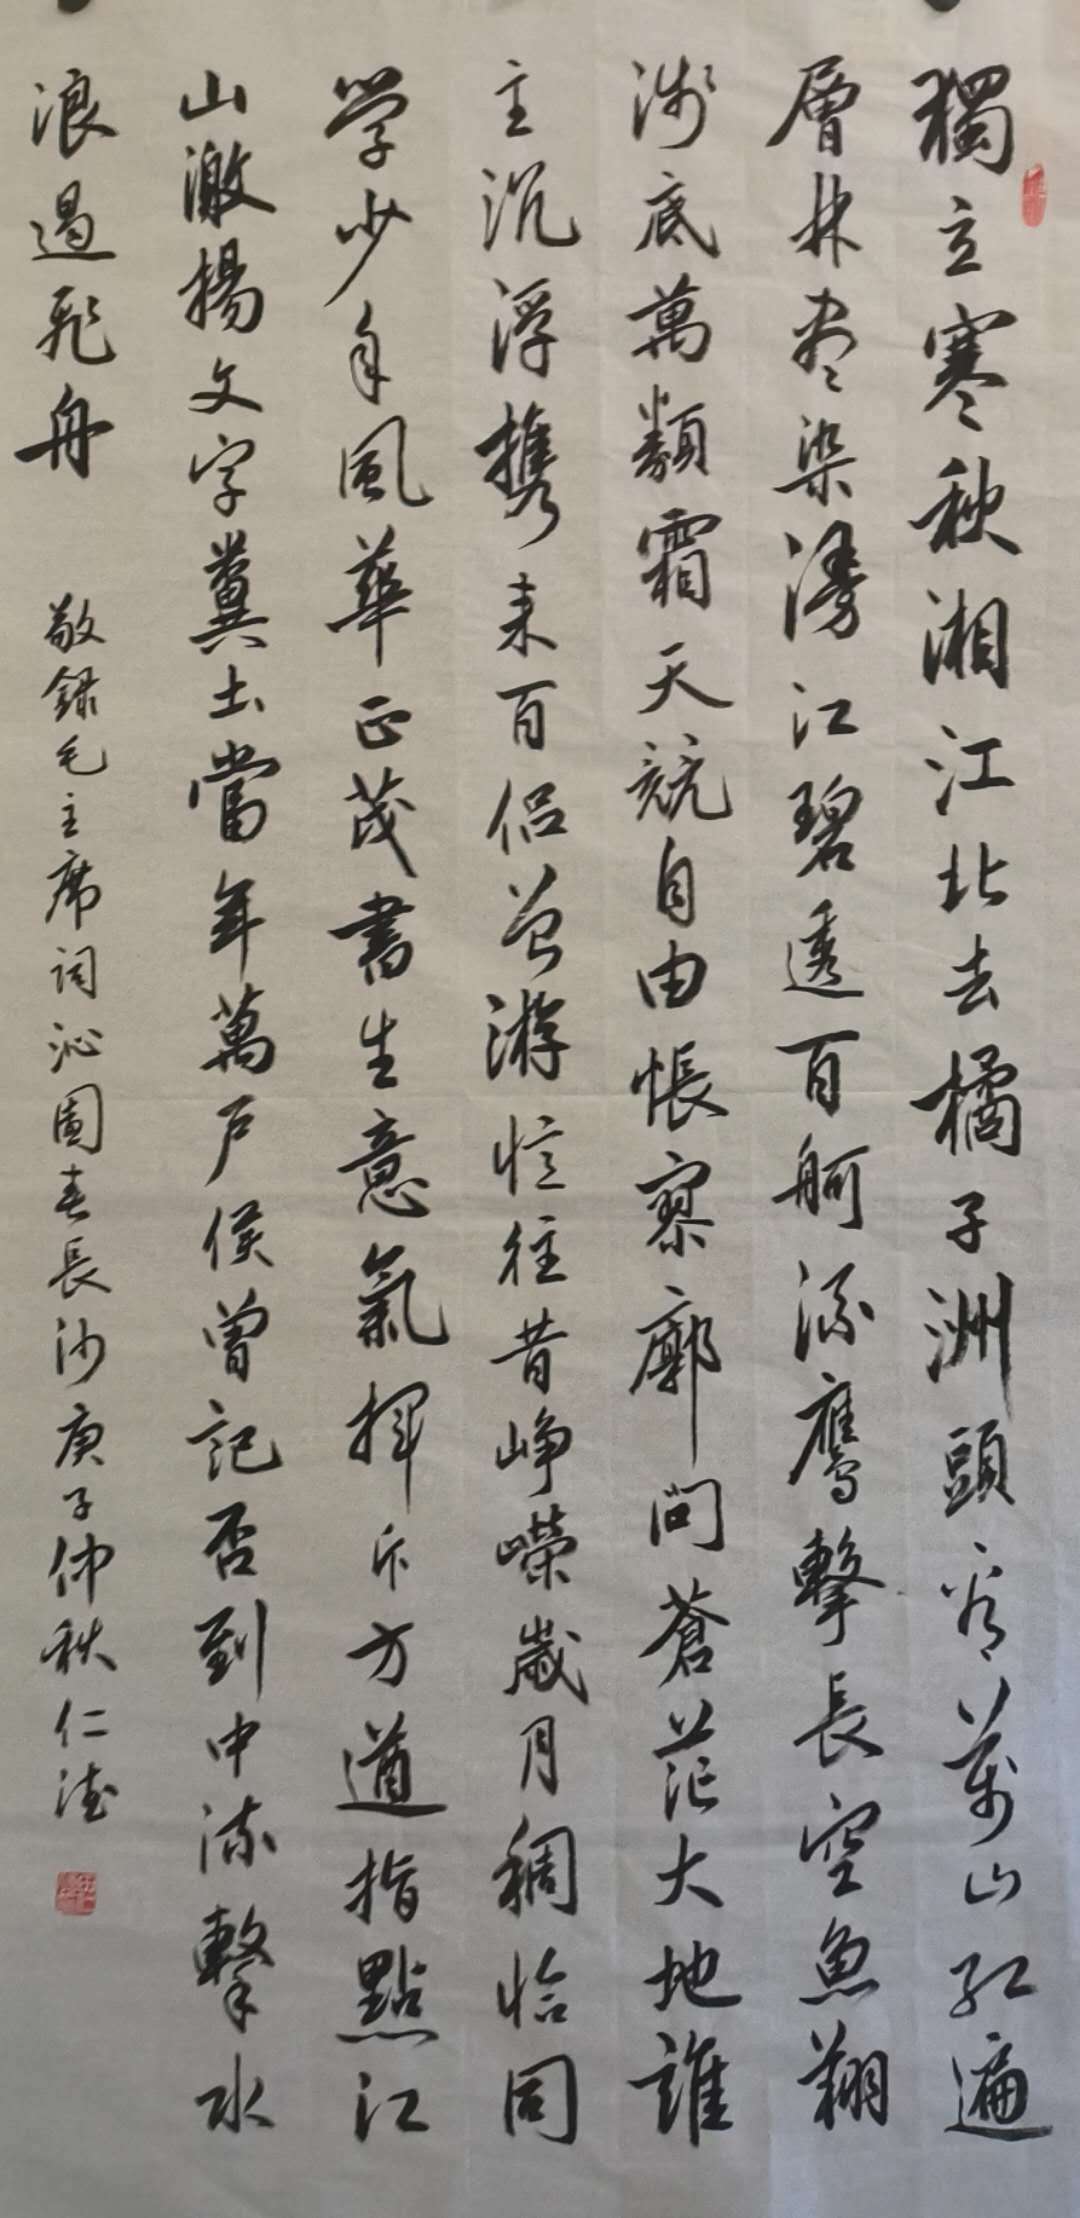 獨立寒秋湘江北去橘子洲頭看萬山紅遍
層林盡染漫江碧透百舸流鷹擊長空魚翔
淺底萬類霜天競自由悵寥廓問蒼茫大地誰
主沉浮攜來百侣曾游憶往昔崢嶸歲月稠恰同
学少年風華正茂書生意氣揮斥方遒指點江
山激揚文字糞土當年萬户侯曾記否到中流擊水
浪遏飛舟
敬録毛主席詞沁園春長沙庚子仲秋仁德